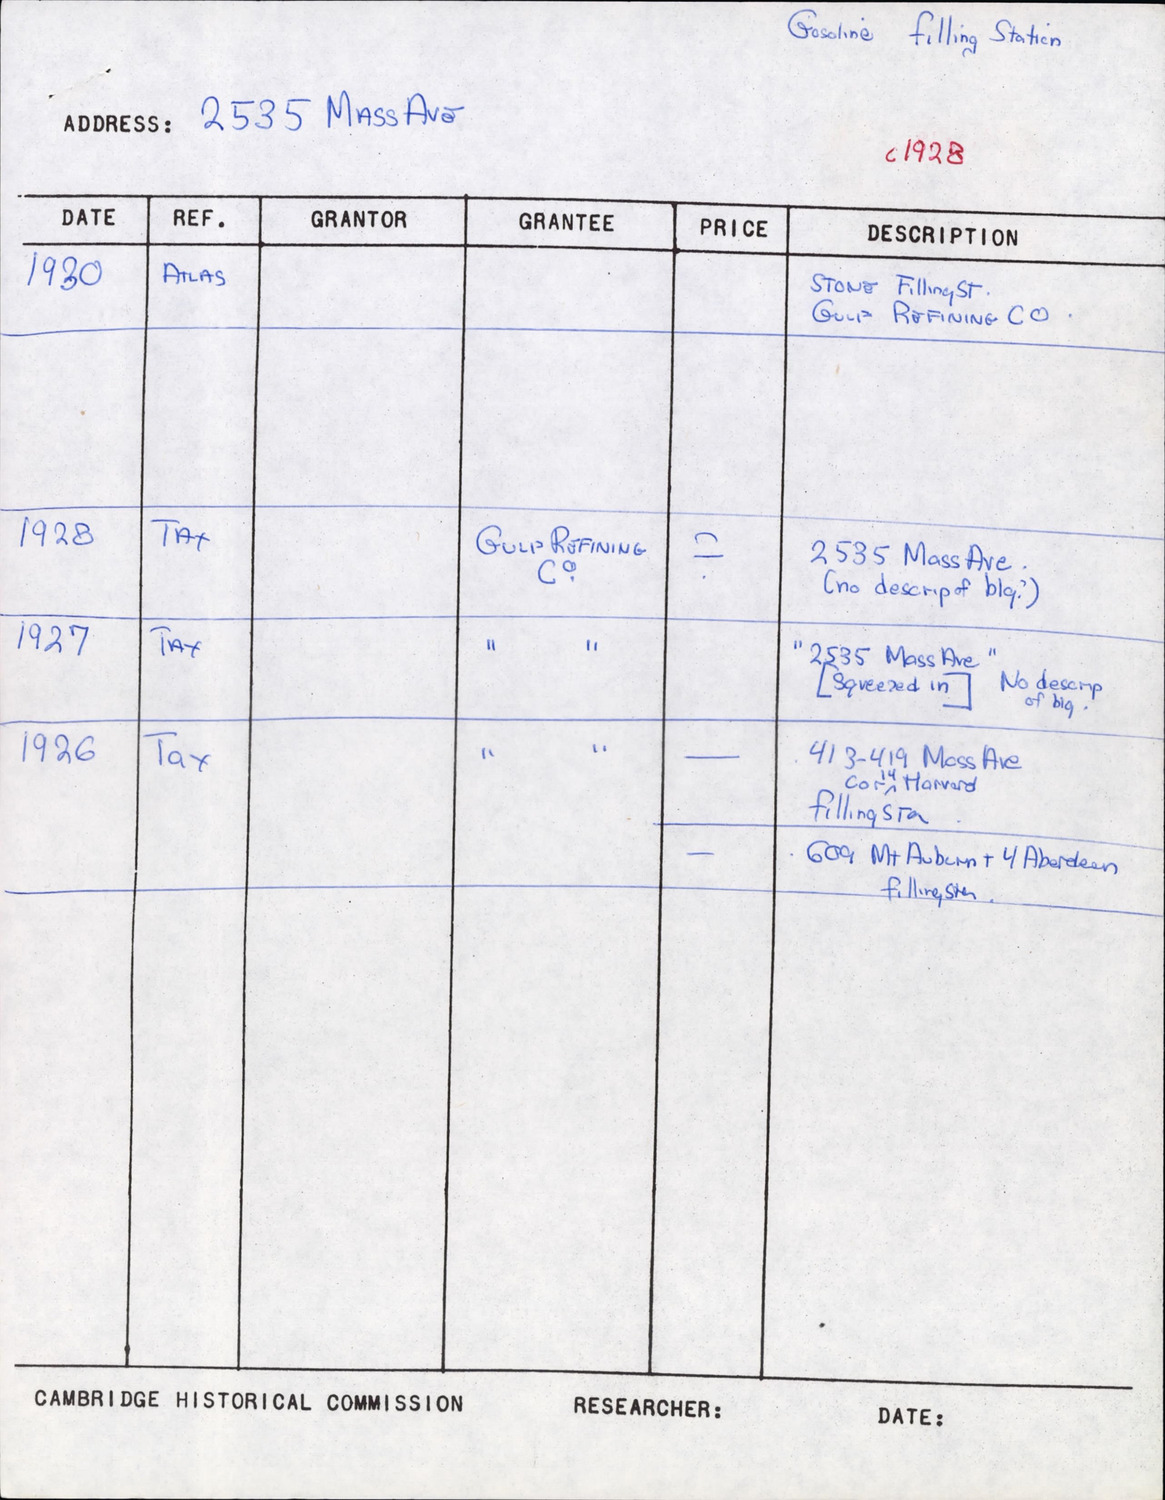 Gasoline Filling Station
ADDRESS: 2535 Mass Ave
c1928
DATE REF. GRANTOR GRANTEE PRICE DESCRIPTION
1930 Atlas Stone Filling St.
Gulf Refining Co.
1928 Tax Gulf Refining Co. 2535 Mass Ave.
(no descrip of blg.)
1927 Tax " " "2535 Mass Ave"
[Squeezed in] No descrip
of blg.
1926 Tax " " — 413-419 Mass Ave
cor 14 Harvard
filling sta.
— 609 Mt Auburn + 4 Aberdeen
filling sta.
CAMBRIDGE HISTORICAL COMMISSION RESEARCHER: DATE: